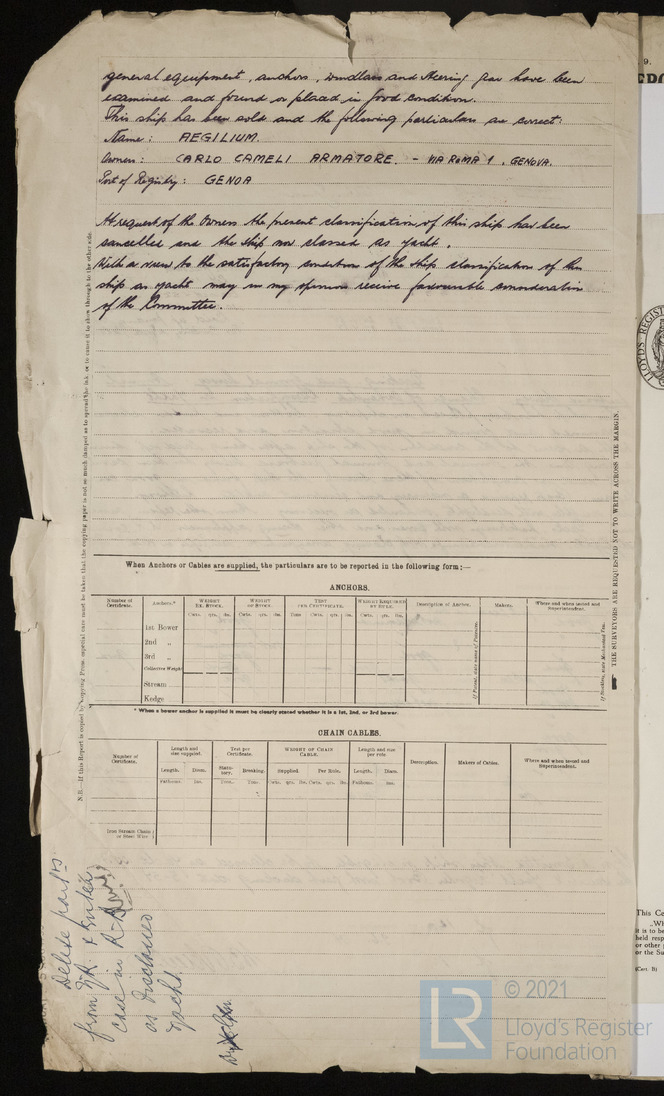 general equipment, anchors, windlass and steering gear have been
examined and found or placed in good condition.
This ship has been sold and the following particulars are correct:
Name: AEGILIUM.
Owners: CARLO CAMELI ARMATORE. - VIA ROMA 1, GENOVA.
Port of Registry: GENOA
At request of the Owners the present classification of this ship has been
cancelled and the ship now classed as yacht.
With a view to the satisfactory condition of the ship classification of this
ship as yacht may in my opinion receive favourable consideration
of the Committee.
N.B.—If this Report is copied by Copying Press, especial care must be taken that the copying paper is not so much damped as to spread the ink, or to cause it to show through to the other side.
THE SURVEYORS ARE REQUESTED NOT TO WRITE ACROSS THE MARGIN.
When Anchors or Cables are supplied, the particulars are to be reported in the following form:—
ANCHORS.
Number of Certificate. Anchors.* WEIGHT EX. STOCK. WEIGHT OF STOCK. TEST PER CERTIFICATE. WEIGHT REQUIRED BY RULE. Description of Anchor. Makers. Where and when tested and Superintendent.
Cwts. qrs. lbs. Cwts. qrs. lbs. Tons Cwts. qrs. lbs. Cwts. qrs. lbs.
1st Bower
2nd „
3rd „
Collective Weight
Stream
Kedge
* When a bower anchor is supplied it must be clearly stated whether it is a 1st, 2nd, or 3rd bower.
CHAIN CABLES.
Number of Certificate. Length and size supplied. Test per Certificate. WEIGHT OF CHAIN CABLE. Length and size per rule Description. Makers of Cables. Where and when tested and Superintendent.
Length. Diam. Statutory. Breaking. Supplied. Per Rule. Length. Diam.
Fathoms. Ins. Tons. Tons. Cwts. qrs. lbs. Cwts. qrs. lbs. Fathoms. Ins.
Iron Stream Chain or Steel Wire
Delete part's
from
case in
as
Yacht
© 2021
LR Lloyd's Register
Foundation
LLOYD'S REGIST
This Ce
held resp
or other
or the Su
(Cert. B)